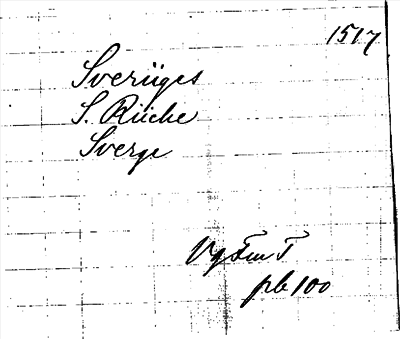 1517
Sveriiges
S. Riiche
Sverge
Vg Fm T
pb 100